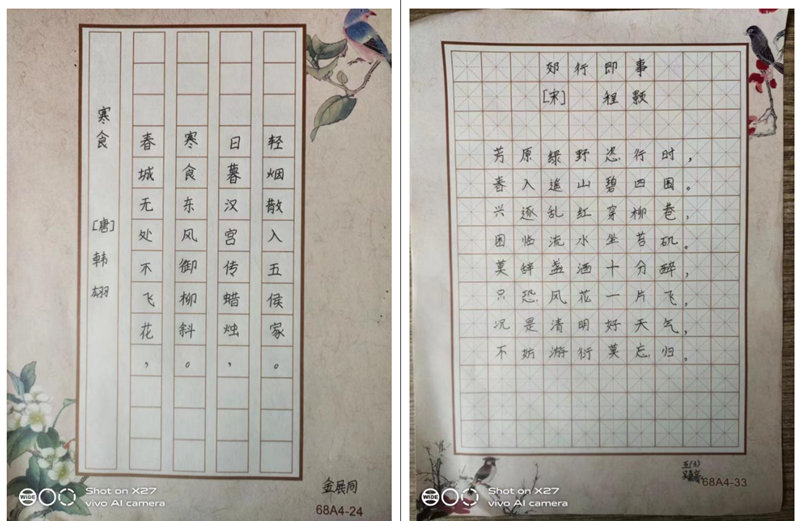 寒食
[唐]韩翃
春城无处不飞花，
寒食东风御柳斜。
日暮汉宫传蜡烛，
轻烟散入五侯家。
68A4-24
Shot on X27
vivo AI camera
郊行即事
[宋] 程颢
芳原绿野恣行时，
春入遥山碧四围。
兴逐乱红穿柳巷，
困临流水坐苔矶。
莫辞盏酒十分醉，
只恐风花一片飞。
况是清明好天气，
不妨游衍莫忘归。
68A4-33
Shot on X27
vivo AI camera